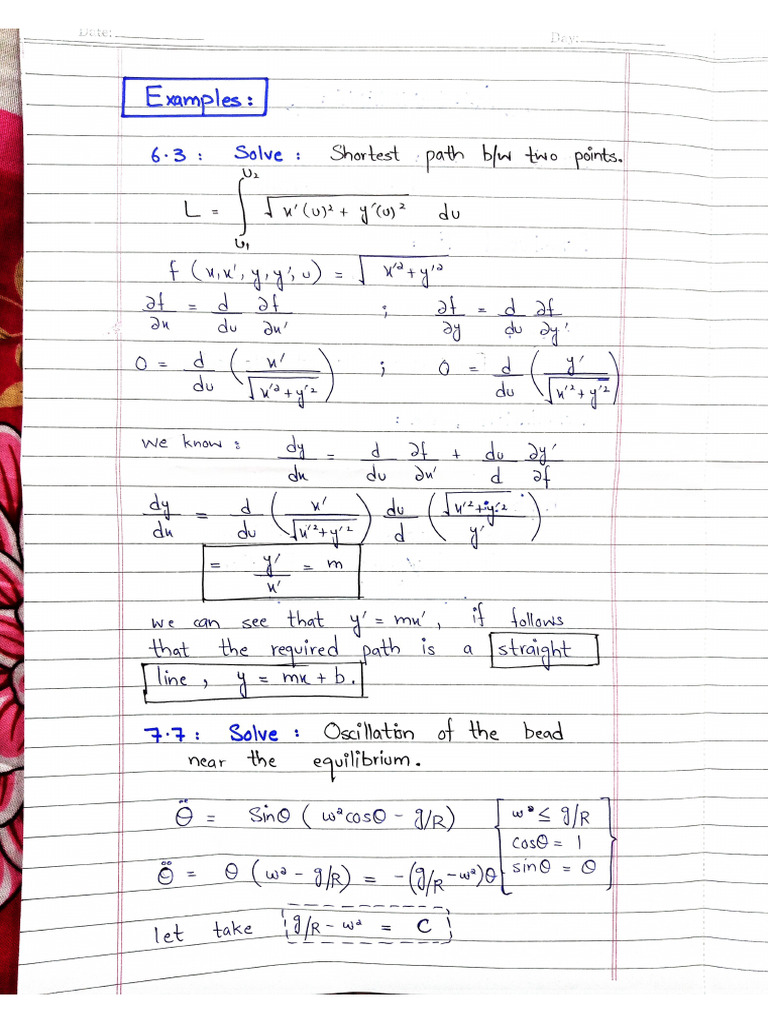 Date:
Day:
Examples:
6.3 : Solve : Shortest path b/w two points.
L = ∫_{U₁}^{U₂} √(x'(u)² + y'(u)²) du
f (x, x', y, y', u) = √(x'² + y'²)
∂f/∂x = d/du ∂f/∂x' ; ∂f/∂y = d/du ∂f/∂y'
0 = d/du (x'/√(x'² + y'²)) ; 0 = d/du (y'/√(x'² + y'²))
we know : dy/dx = d/du ∂f/∂x' + du/d ∂y'/∂f
dy/dx = d/du (x'/√(x'² + y'²)) du/d (√(x'² + y'²)/y')
= y'/x' = m
we can see that y' = mx', if follows
that the required path is a straight
line, y = mx + b.
7.7 : Solve : Oscillation of the bead
near the equilibrium.
θ̈ = Sinθ (w²cosθ - g/R) [w² ≤ g/R
cosθ = 1
θ̈ = θ (w² - g/R) = -(g/R - w²)θ sinθ = θ]
let take g/R - w² = C